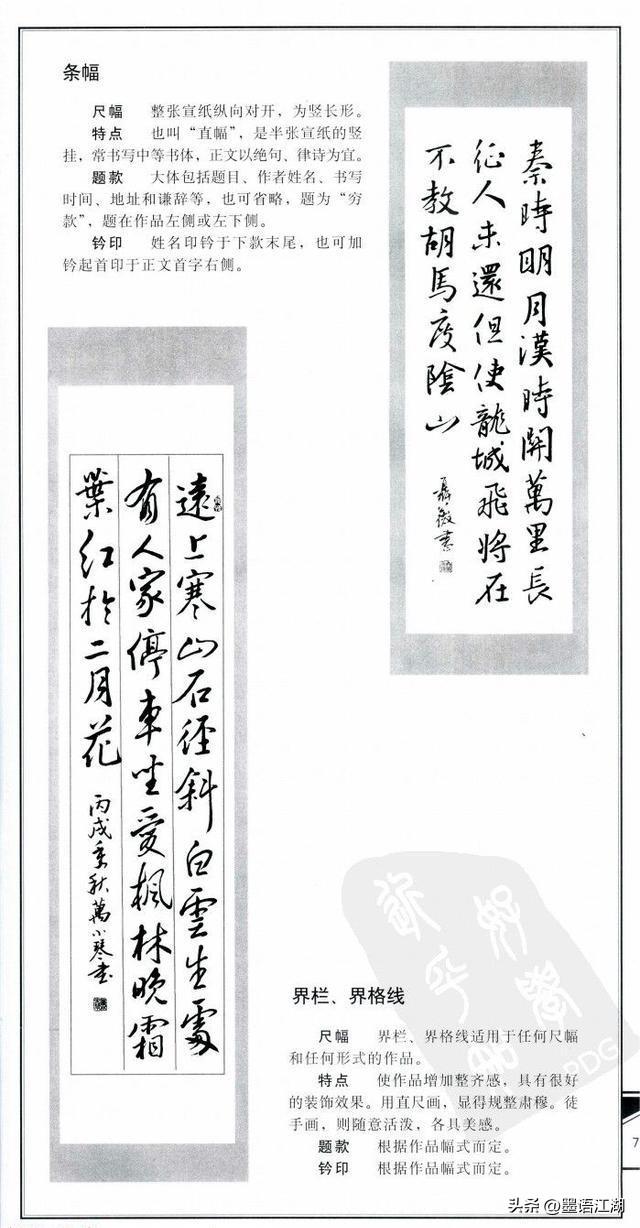 条幅
尺幅 整张宣纸纵向对开，为竖长形。
特点 也叫“直幅”，是半张宣纸的竖
挂，常书写中等书体，正文以绝句、律诗为宜。
题款 大体包括题目、作者姓名、书写
时间、地址和谦辞等，也可省略，题为“穷
款”，题在作品左侧或左下侧。
钤印 姓名印钤于下款末尾，也可加
钤起首印于正文首字右侧。
秦時明月漢時關萬里長
征人未還但使龍城飛將在
不教胡馬度陰山
聶微書
遠上寒山石徑斜白雲生處
有人家停車坐愛楓林晚霜
葉紅於二月花
丙戌季秋萬小琴書
界栏、界格线
尺幅 界栏、界格线适用于任何尺幅
和任何形式的作品。
特点 使作品增加整齐感，具有很好
的装饰效果。用直尺画，显得规整肃穆。徒
手画，则随意活泼，各具美感。
题款 根据作品幅式而定。
钤印 根据作品幅式而定。
PDG
7
头条@墨语江湖